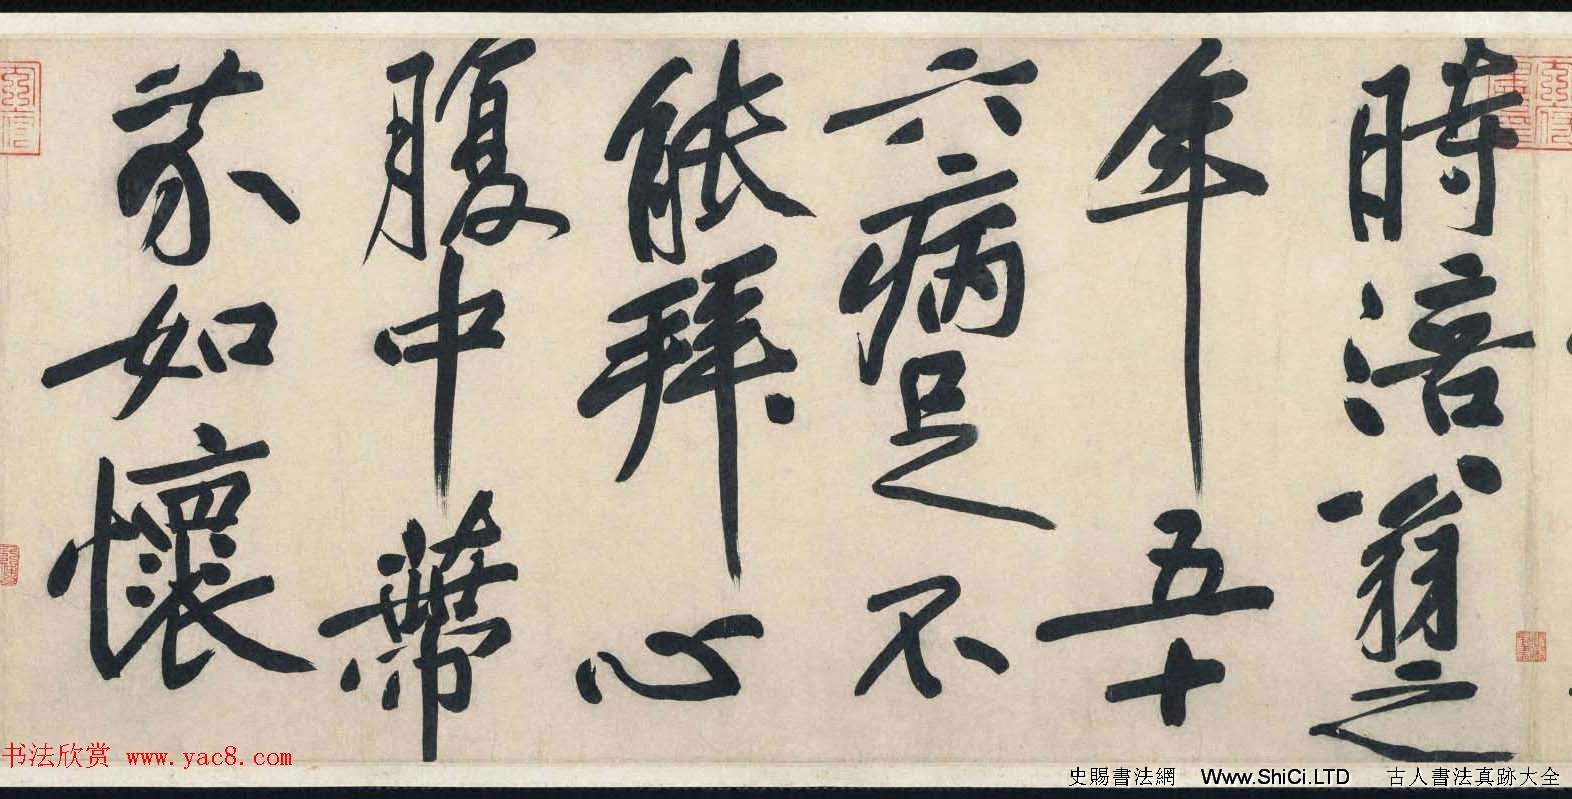 時涪翁之
年五十
六病足不
能拜心
腹中蔕
芥如懷
书法欣赏 www.yac8.com
史賜書法網 Www.ShiCi.LTD 古人書法真跡大全